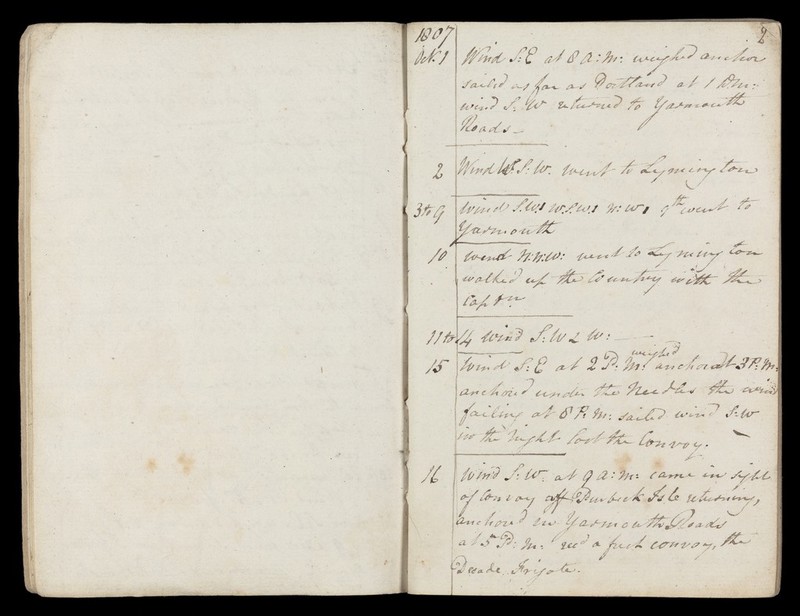 2
1807
Oct. 1 Wind S:E at 8 A:M: weighed anchor
sailed as far as Portland at 1 P.M:
wind S:W returned to Yarmouth
Roads
2 Wind W S:W. went to Lymington
3 to 9 wind S.W: W.S.W: N:W: 9th went to
Yarmouth
10 wind N:N:W: went to Lymington
walked up the Country with the
Captn.
11 to 14 wind S:W & W:
15 Wind S:E at 2 P:M: weighed anchor at 3 P:M:
anchor'd under the Needles the wind
failing at 8 P:M: sailed wind S:W
in the Night lost the Convoy.
16 Wind S:W. at 9 A:M: came in sight
of Convoy off Purbeck Isle returning,
anchored in Yarmouth Roads
at 5 P:M: rec'd a fresh convoy, the
Decade Frigate.